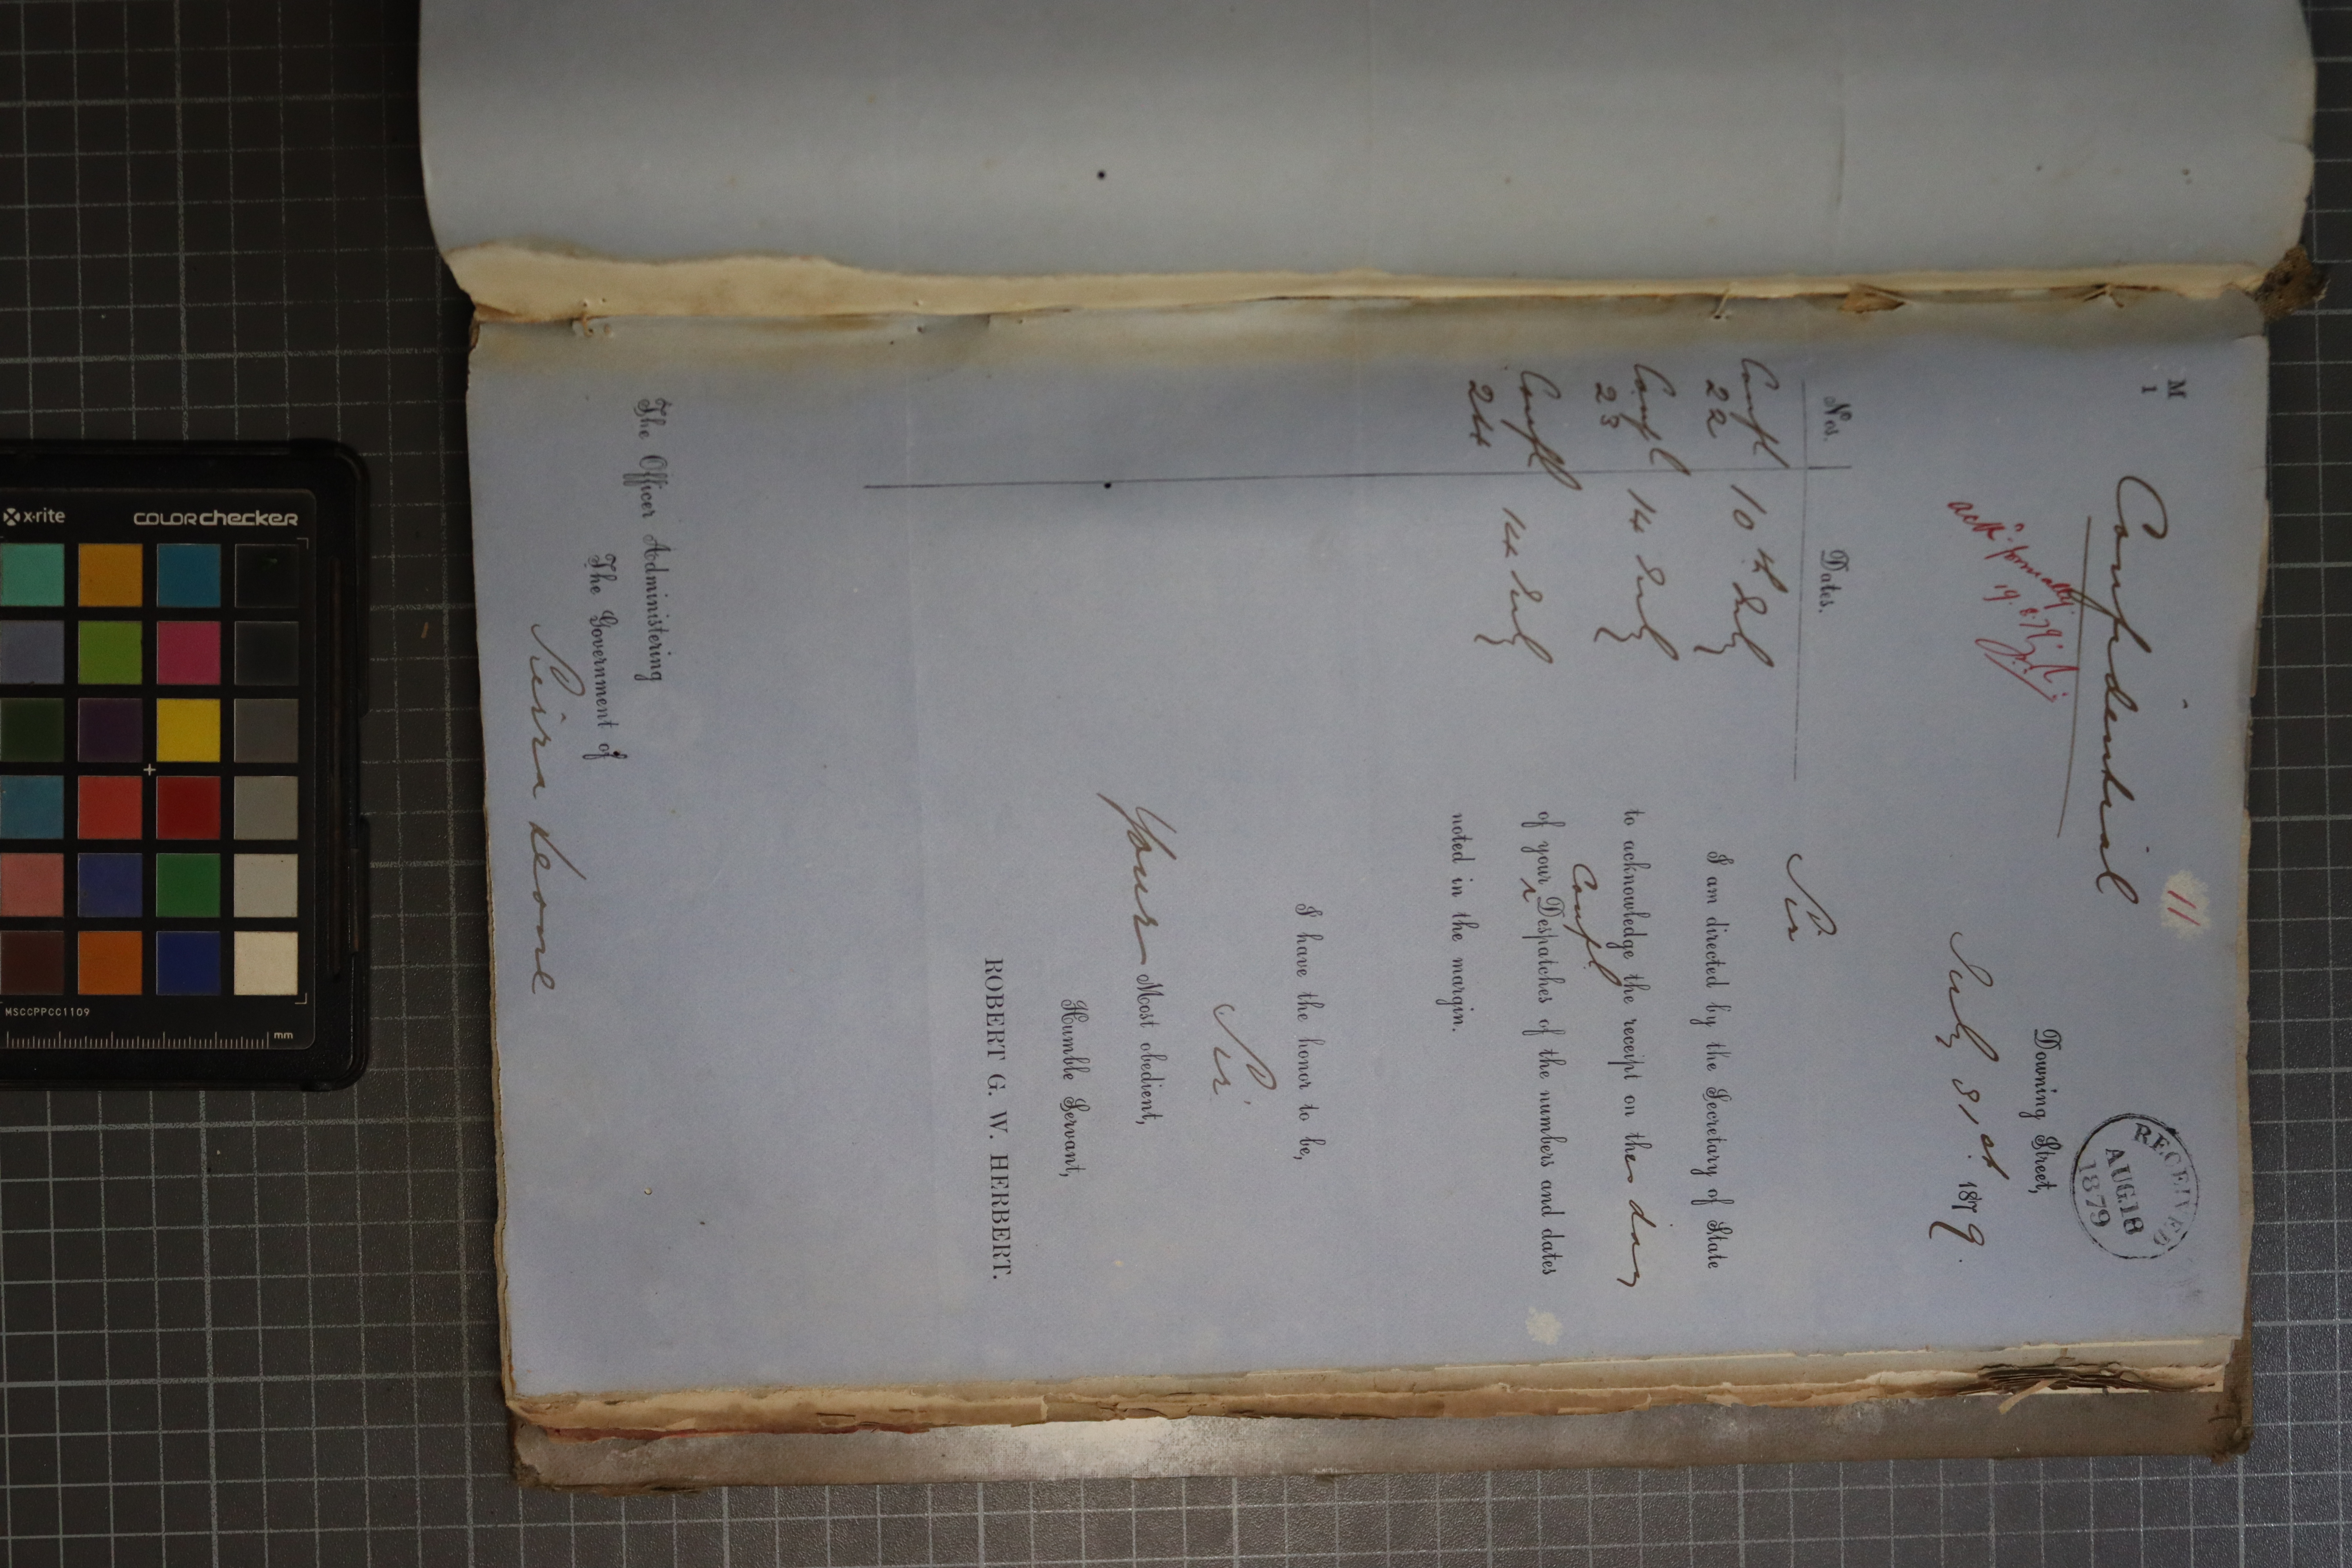 M
1
Confidential
11
RECEIVED
AUG.18
1879
Downing Street,
July 31st. 1879.
19.8.79
Nos.
Dates.
Confl
22
10th July
Confl
23
14 July
Confl
24
14 July
Sir
I am directed by the Secretary of State
to acknowledge the receipt on the day
Confl
of your Despatches of the numbers and dates
noted in the margin.
I have the honor to be,
Sir,
Your Most obedient,
Humble Servant,
ROBERT G. W. HERBERT.
The Officer Administering
The Government of
Sierra Leone
x-rite
COLORchecker
MSCCPPCC1109
mm